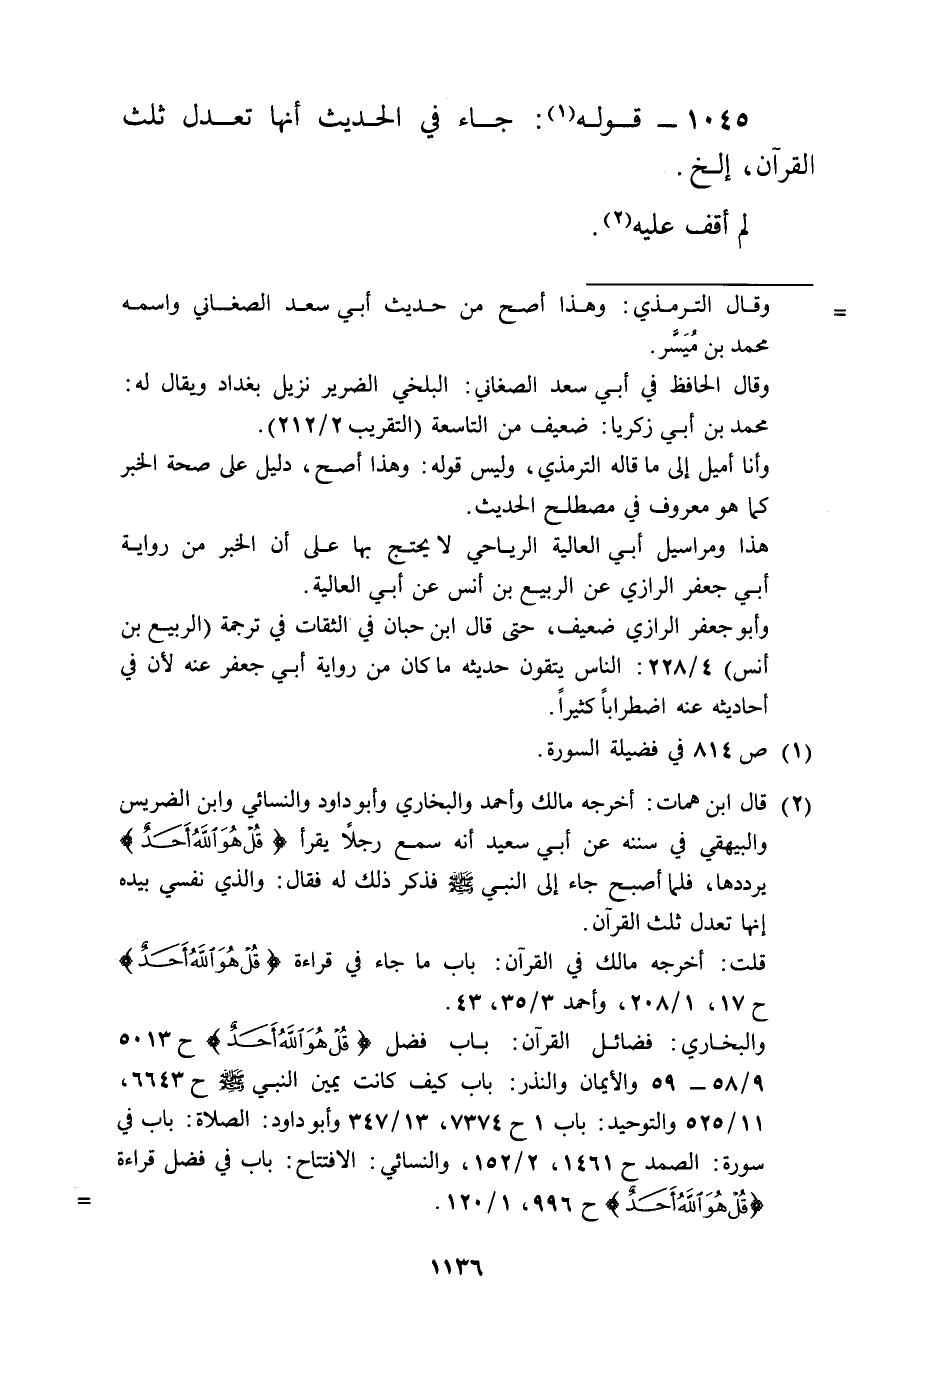 ١٠٤٥ ــ قـوله(١): جـاء في الحـديث أنها تعـدل ثلث
القرآن، إلخ.
لم أقف عليه(٢).
= وقال الترمذي: وهذا أصح من حديث أبي سعد الصغاني واسمه
محمد بن مُيَسَّر.
وقال الحافظ في أبي سعد الصغاني: البلخي الضرير نزيل بغداد ويقال له:
محمد بن أبي زكريا: ضعيف من التاسعة (التقريب ٢/٢١٢).
وأنا أميل إلى ما قاله الترمذي، وليس قوله: وهذا أصح، دليل على صحة الخبر
كما هو معروف في مصطلح الحديث.
هذا ومراسيل أبي العالية الرياحي لا يحتج بها على أن الخبر من رواية
أبي جعفر الرازي عن الربيع بن أنس عن أبي العالية.
وأبو جعفر الرازي ضعيف، حتى قال ابن حبان في الثقات في ترجمة (الربيع بن
أنس) ٤/٢٢٨: الناس يتقون حديثه ما كان من رواية أبي جعفر عنه لأن في
أحاديثه عنه اضطراباً كثيراً.
(١) ص ٨١٤ في فضيلة السورة.
(٢) قال ابن همات: أخرجه مالك وأحمد والبخاري وأبو داود والنسائي وابن الضريس
والبيهقي في سننه عن أبي سعيد أنه سمع رجلًا يقرأ ﴿ قُلْ هُوَ ٱللَّهُ أَحَدٌ ﴾
يرددها، فلما أصبح جاء إلى النبي ﷺ فذكر ذلك له فقال: والذي نفسي بيده
إنها تعدل ثلث القرآن.
قلت: أخرجه مالك في القرآن: باب ما جاء في قراءة ﴿ قُلْ هُوَ ٱللَّهُ أَحَدٌ ﴾
ح ١٧، ١/٢٠٨، وأحمد ٣/٣٥، ٤٣.
والبخاري: فضائل القرآن: باب فضل ﴿ قُلْ هُوَ ٱللَّهُ أَحَدٌ ﴾ ح ٥٠١٣
٩/٥٨ ــ ٥٩ والأيمان والنذر: باب كيف كانت يمين النبي ﷺ ح ٦٦٤٣،
١١/٥٢٥ والتوحيد: باب ١ ح ٧٣٧٤، ١٣/٣٤٧ وأبو داود: الصلاة: باب في
سورة: الصمد ح ١٤٦١، ٢/١٥٢، والنسائي: الافتتاح: باب في فضل قراءة
﴿ قُلْ هُوَ ٱللَّهُ أَحَدٌ ﴾ ح ٩٩٦، ١/١٢٠. =
١١٣٦